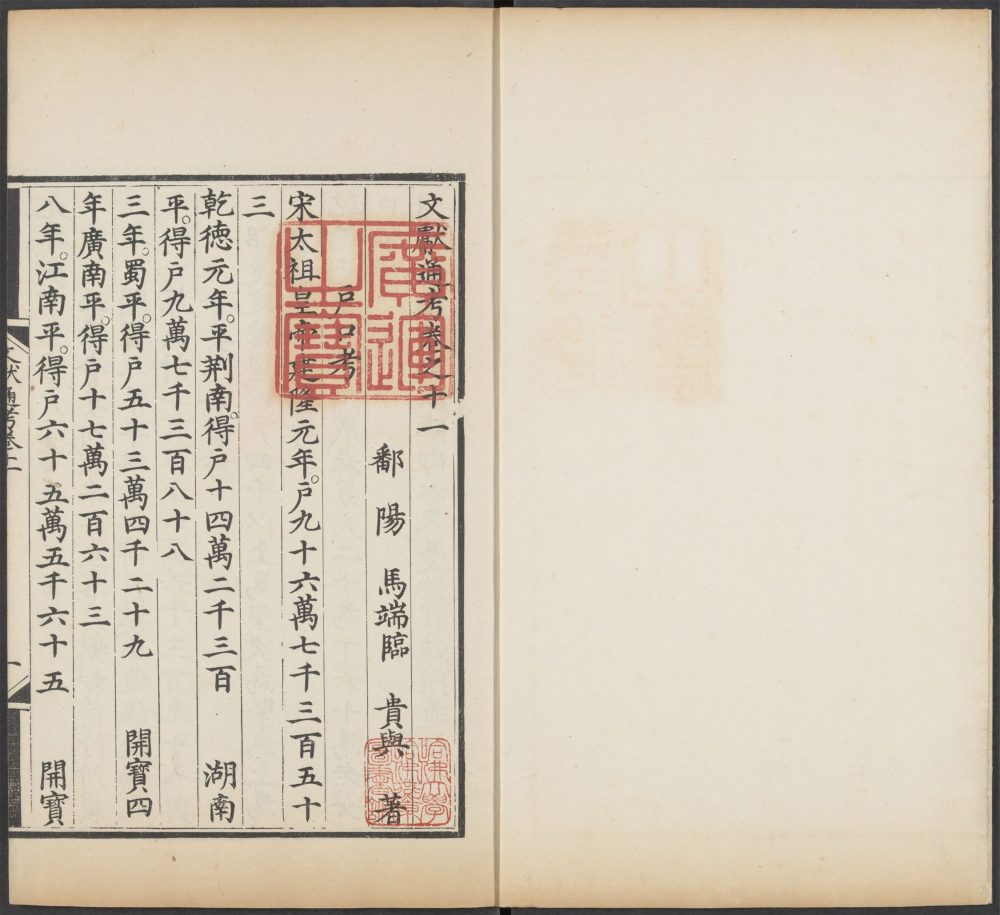 文獻通考卷之十一
户口考
鄱陽 馬端臨 貴與 著
宋太祖皇帝建隆元年。户九十六萬七千三百五十
三
乾徳元年。平荆南。得户十四萬二千三百 湖南
平。得户九萬七千三百八十八
三年。蜀平。得户五十三萬四千二十九 開寶四
年廣南平。得户十七萬二百六十三
八年。江南平。得户六十五萬五千六十五 開寶